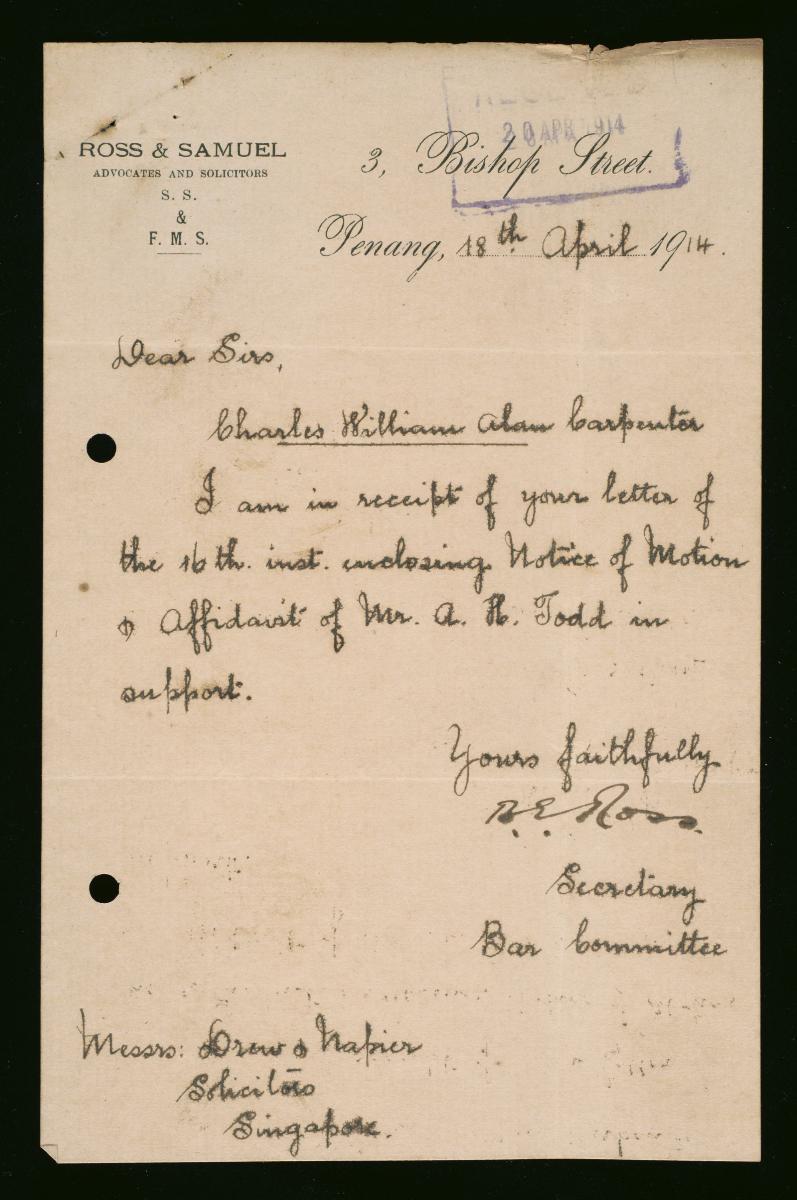 ROSS & SAMUEL
ADVOCATES AND SOLICITORS
S. S.
&
F. M. S.
20 APR 1914
3, Bishop Street.
Penang, 18th April 1914.
Dear Sirs,
Charles William Alan Carpenter
I am in receipt of your letter of
the 16th. inst. enclosing Notice of Motion
& Affidavit of Mr. A. H. Todd in
support.
Yours faithfully
Ross.
Secretary
Bar Committee
Messrs: Drew & Napier
Solicitors
Singapore.